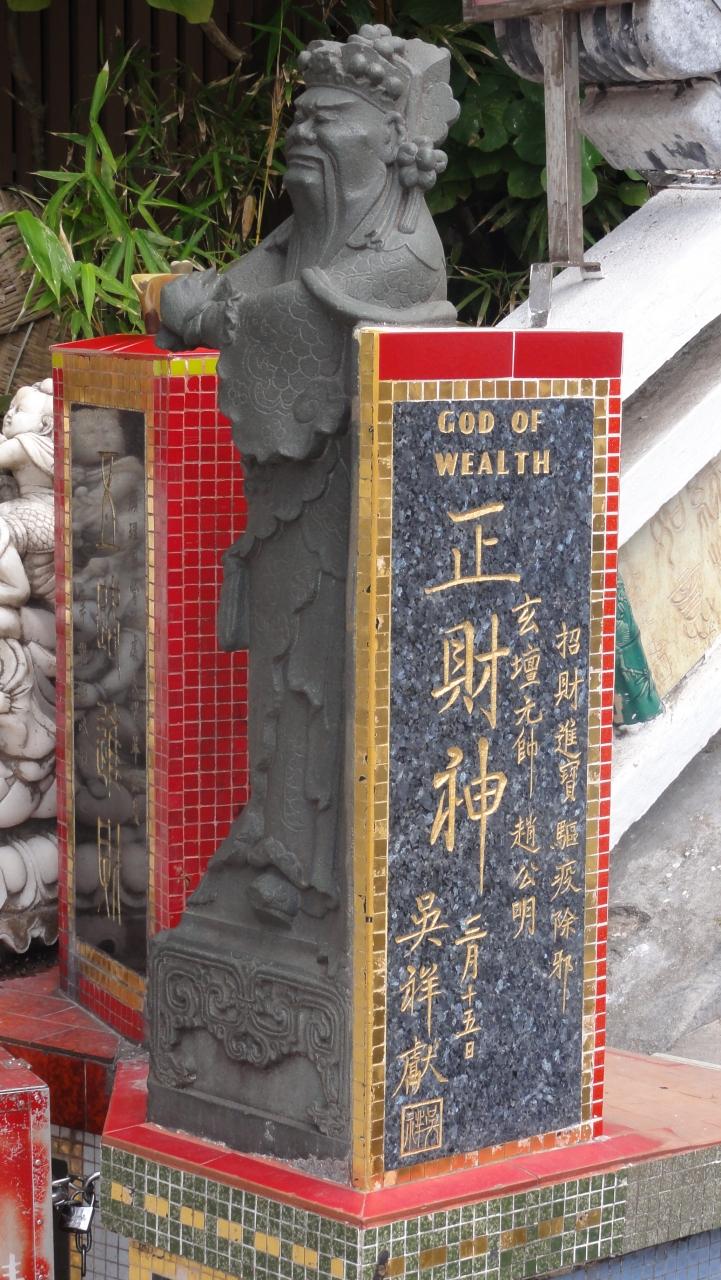 GOD OF
WEALTH
正財神
招財進寶 驅疫除邪
玄壇元帥 趙公明
三月十五日
吳祥獻
吳祥